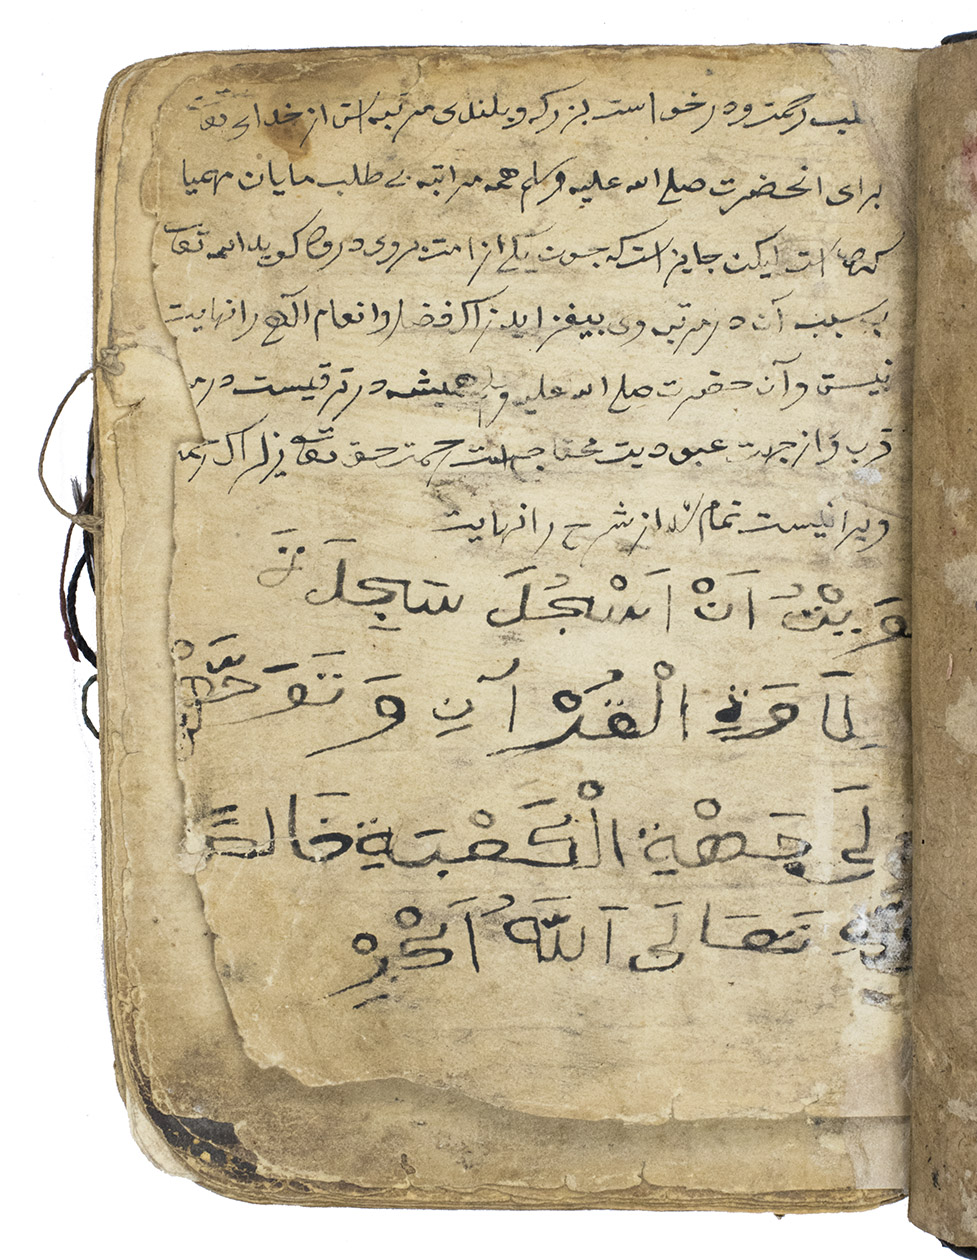 طلب رحمت و درخواست بزركی و بلندی مرتبه است از خدای تعا
برای انحضرت صلی الله علیه وسلم همه مراتبه بی طلب مایان مهیا
است لیکن جایز است که چون یکی از امت بروی درود کوید الله تعا
بسبب آن در مرتبه وی بیفزاید زیراکه فضل وانعام الهی را نهایت
نیست وآن حضرت صلی الله علیه وسلم همیشه در ترقیست در
قرب واز جهت عبودیت محتاج است رحمت حق تعا
ویرا نیست تمام شد از شرح را نهایت
وَيْتُ اَنْ اَسْجُدَ سَجِدَ
لَاوَةِ الْقُرْآنِ وَ تَوَجَّهْتُ
لَى جِهْةِ الْكَعْبَةِ خَالصً
تَعَالَى اَللّٰهُ اَكْبَرْ